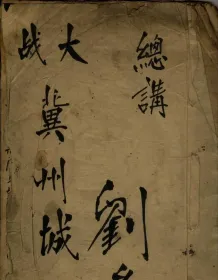 總講
大战
冀州城
劉